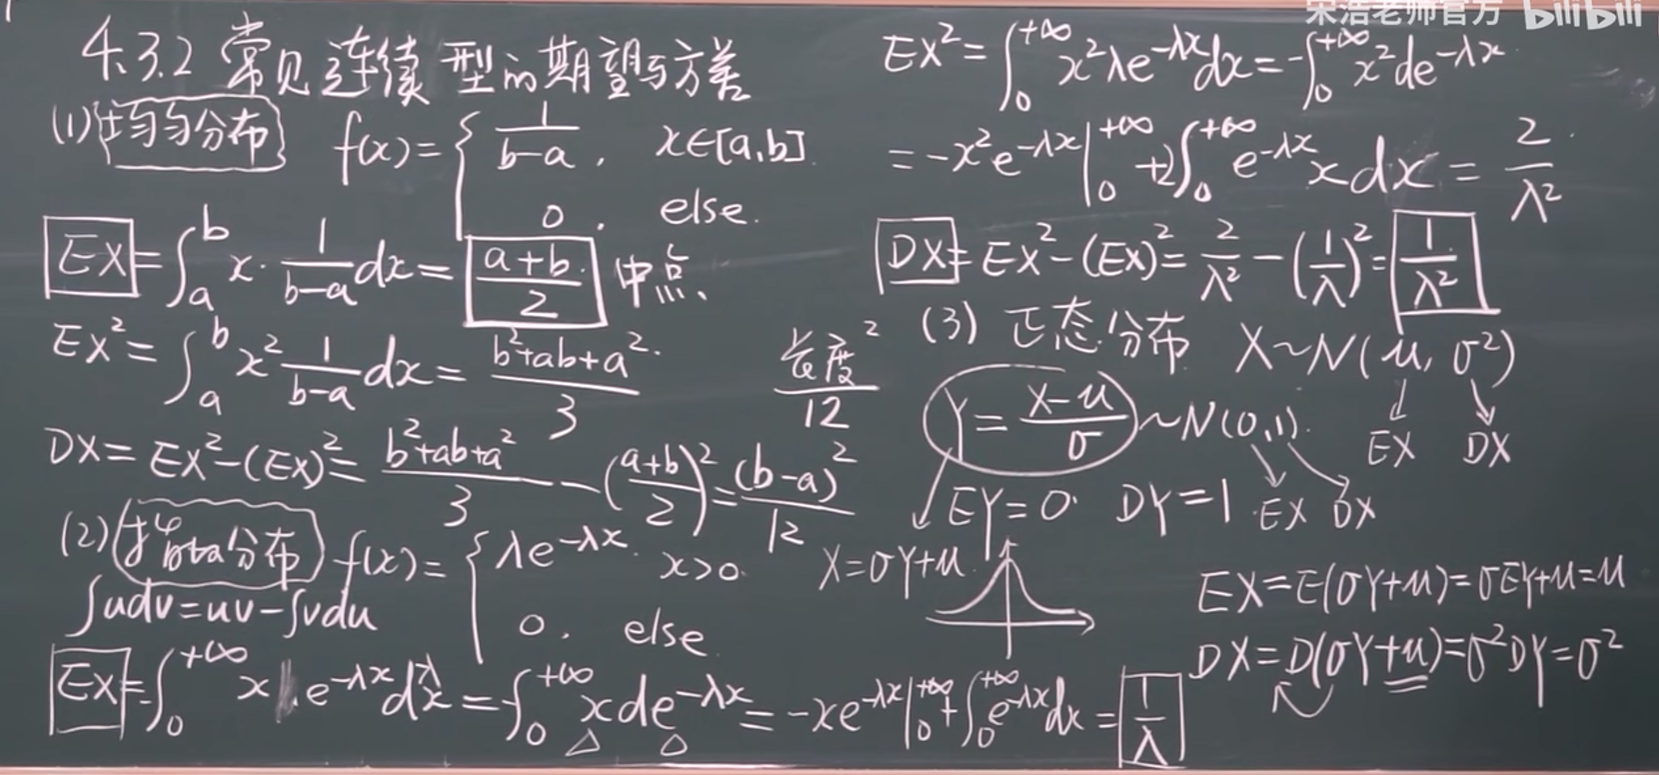 4.3.2 常见连续型的期望与方差
(1) 均匀分布 f(x)={ 1/(b-a), x∈[a,b]
0, else.
EX=∫_a^b x·1/(b-a) dx=(a+b)/2 中点
EX²=∫_a^b x² 1/(b-a) dx=(b²+ab+a²)/3
长度²/12
DX=EX²-(EX)²=(b²+ab+a²)/3-((a+b)/2)²=(b-a)²/12
(2) 分布 f(x)={ λe^{-λx} x>0
0, else
∫udv=uv-∫vdu
EX=∫_0^{+∞} x e^{-λx}dλx=-∫_0^{+∞} xde^{-λx}=-xe^{-λx}|_0^{+∞}+∫_0^{+∞}e^{-λx}dx=1/λ
宋浩老师官方 bilibili
EX²=∫_0^{+∞} x²λe^{-λx}dx=-∫_0^{+∞} x²de^{-λx}
=-x²e^{-λx}|_0^{+∞}+2∫_0^{+∞} e^{-λx}xdx=2/λ²
DX=EX²-(EX)²=2/λ²-(1/λ)²=1/λ²
(3) 正态分布 X~N(μ,σ²)
EX DX
Y=(X-μ)/σ~N(0,1)
EX DX
EY=0 DY=1
X=σY+μ
EX=E(σY+μ)=σEY+μ=μ
DX=D(σY+μ)=σ²DY=σ²